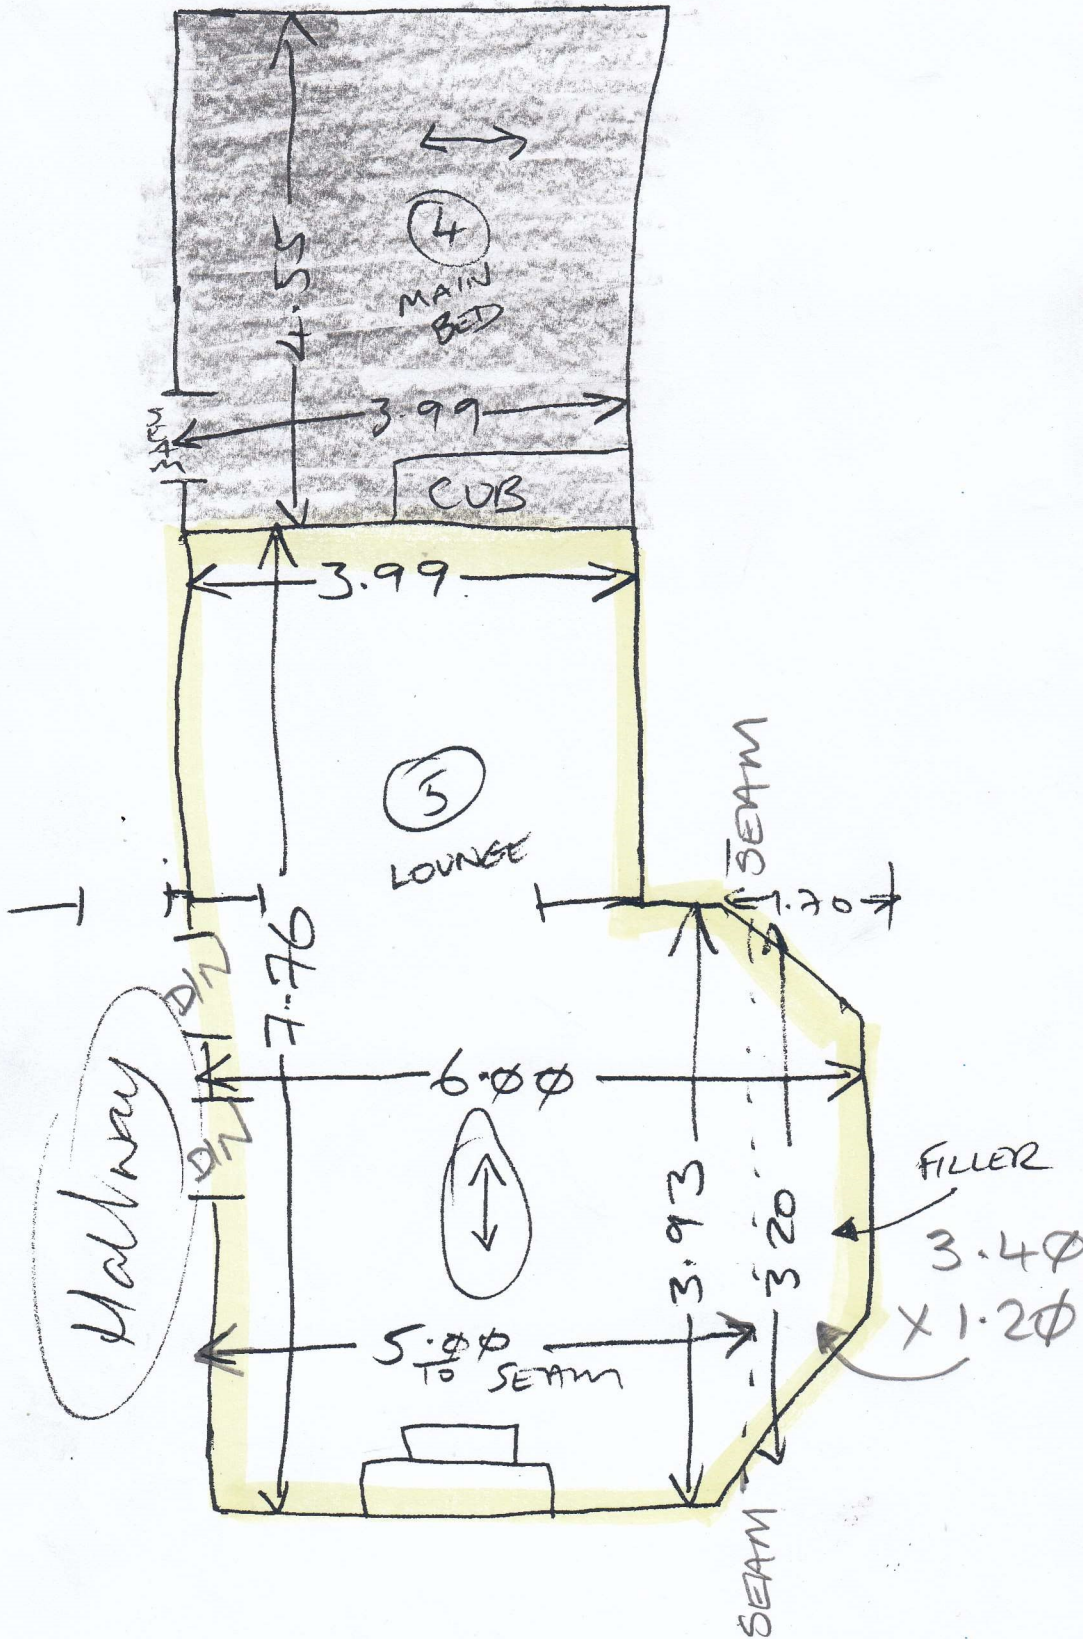 4.55
4
MAIN
BED
3.99
SEAM
CUB
3.99
5
LOUNGE
SEAM
1.70
D/N
7.76
Hallway
6.00
D/N
3.93
3.20
FILLER
3.40
X 1.20
5.00
TO SEAM
SEAM